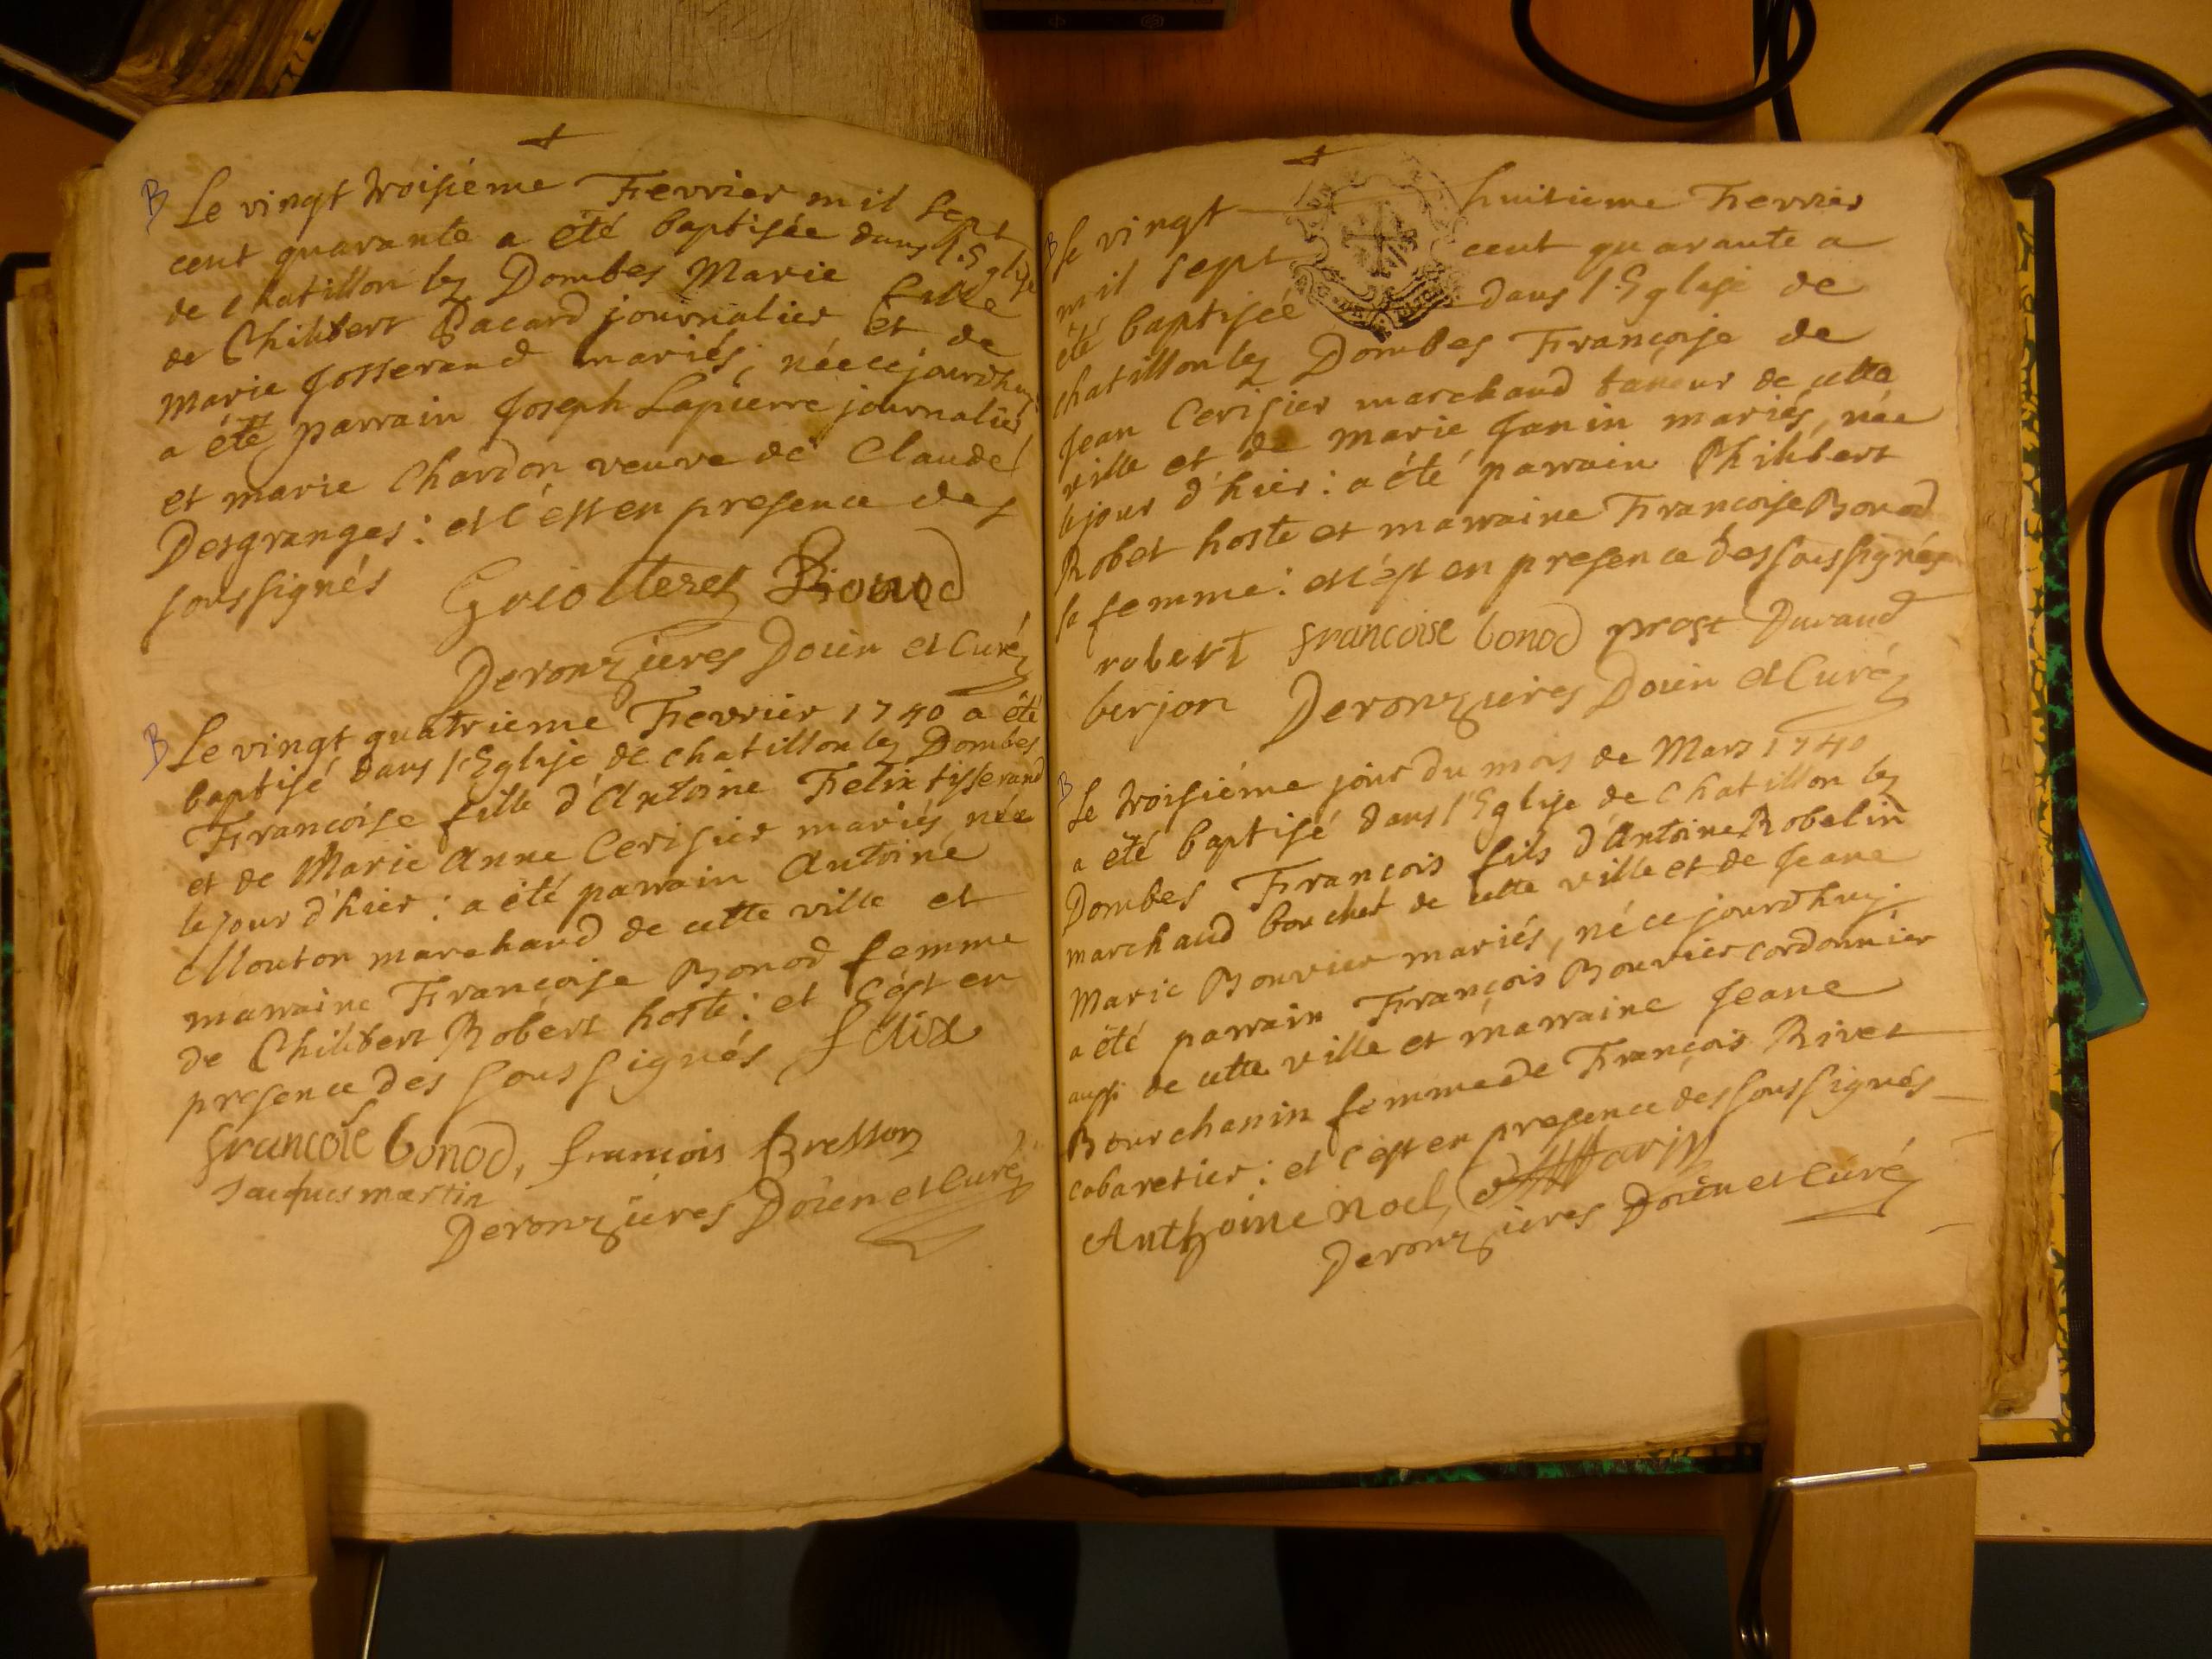 B Le vingt troisiéme Fevrier mil sept
cent quarante a été baptisée dans l'Eglise
de Chatillon les Dombes Marie fille
de Philibert Pacard journalier et de
Marie Josserand mariés, née cejourdhuy:
a été parrain Joseph Lapierre journalier
et marie Chardon veuve de Claude
Desgranges: et c'est en presence des
soussignés Griotteret Bionod
Deronzieres Doien et Curé
B Le vingt quatrieme Fevrier 1740 a été
baptisé dans l'Eglise de chatillon les Dombes
Francoise fille d'Antoine Felix tisserand
et de Marie Anne Cerisier mariés, née
le jour d'hier: a été parrain Antoine
Mouton marchand de cette ville et
marraine Francoise Bonod femme
de Philibert Robert hoste: et c'est en
presence des soussignés felix
francoise bonod, francois Bresson
Jacques martin
Deronzieres Doien et Curé
B Le vingt huitieme Fevrier
mil sept cent quarante a
été baptisée dans l'Eglise de
chatillon les Dombes Françoise de
Jean Cerisier marchand taneur de cette
ville et de Marie Janin mariés, née
le jour d'hier: a été parrain Philibert
Robet hoste et marraine Francoise Bonod
sa femme: et c'est en presence des soussignés
robert francoise bonod prost Durand
berjon Deronzieres Doien et Curé
B Le troisiéme jour du mois de Mars 1740
a été baptisé dans l'Eglise de Chatillon les
Dombes François fils d'Antoine Robelin
marchand boucher de cette ville et de Jeane
Marie Bouvier mariés, né ce jourdhuy:
a été parrain François Bouvier cordonnier
aussi de cette ville et marraine Jeane
Bourchanin femme de François Rivet
cabaretier: et c'est en presence des soussignés
Anthoine noel,
Deronzieres Doien et Curé